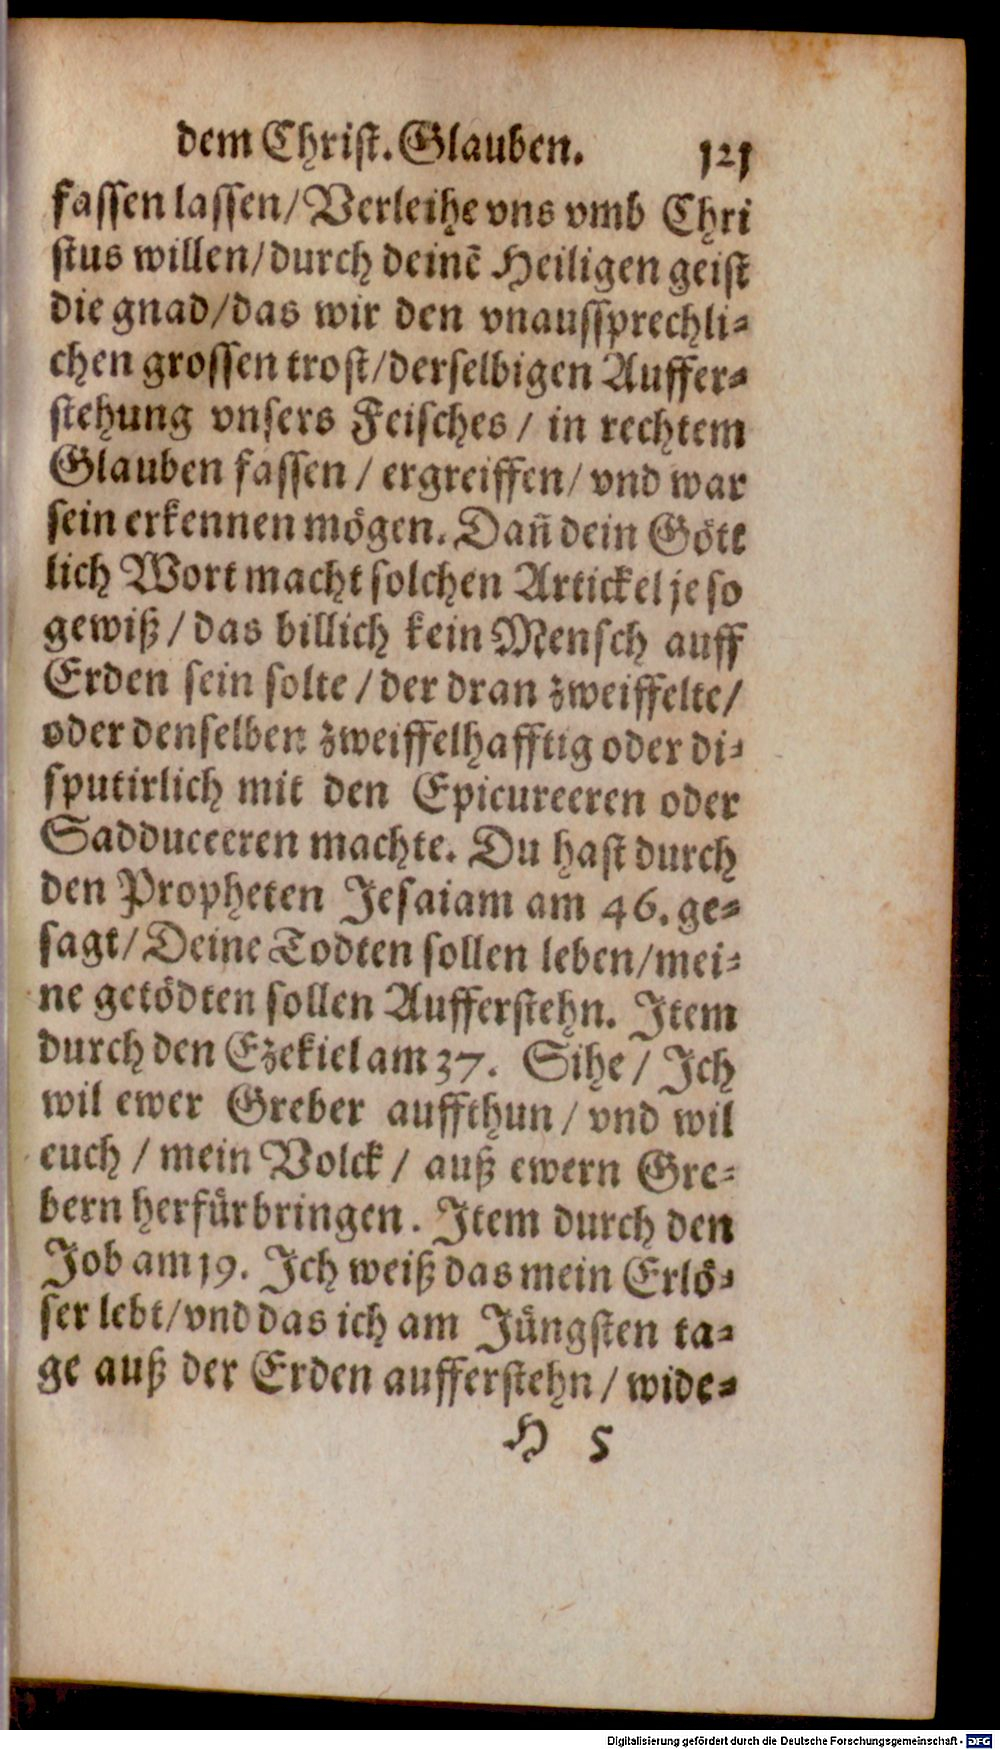 dem Christ. Glauben. 121
fassen lassen/ Verleihe vns vmb Chri
stus willen/ durch deinẽ Heiligen geist
die gnad/ das wir den vnaussprechli-
chen grossen trost/ derselbigen Auffer-
stehung vnsers Feisches / in rechtem
Glauben fassen / ergreiffen/ vnd war
sein erkennen mögen. Dañ dein Gött
lich Wort macht solchen Artickel je so
gewiß / das billich kein Mensch auff
Erden sein solte / der dran zweiffelte/
oder denselben zweiffelhafftig oder di-
sputirlich mit den Epicureeren oder
Sadduceeren machte. Du hast durch
den Propheten Jesaiam am 46. ge-
sagt/ Deine Todten sollen leben/ mei-
ne getödten sollen Aufferstehn. Item
durch den Ezekiel am 37. Sihe / Ich
wil ewer Greber auffthun / vnd wil
euch / mein Volck / auß ewern Gre-
bern herfürbringen. Item durch den
Job am 19. Ich weiß das mein Erlö-
ser lebt/ vnd das ich am Jüngsten ta-
ge auß der Erden aufferstehn / wide-
H 5
Digitalisierung gefördert durch die Deutsche Forschungsgemeinschaft - DFG